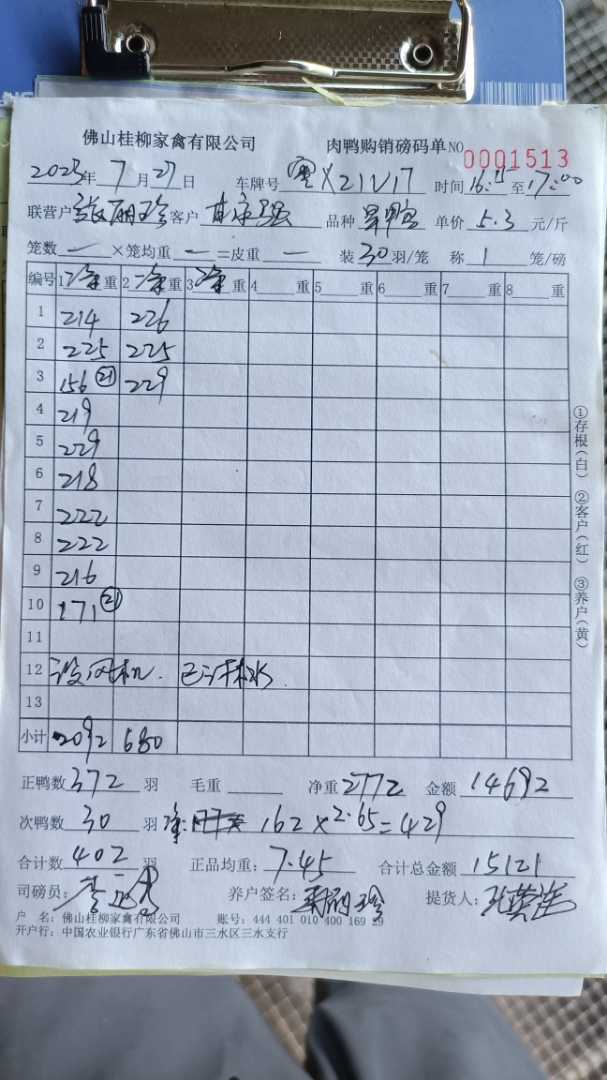 佛山桂柳家禽有限公司 肉鸭购销磅码单 NO 0001513
2023年 7月 27日 车牌号 粤X21V17 时间 16:15 至 17:00
联营户 张丽珍 客户 单价 5.3 元/斤 品种
笼数 一 ×笼均重 一 =皮重 一 装 30 羽/笼 称 1 笼/磅
编号 1 净 重 2 净 重 3 净 重 4 重 5 重 6 重 7 重 8 重
1 214 226
2 225 225
3 156 (21) 229
4 219
5 229
6 218
7 222
8 222
9 216
10 171 (21)
11
12 没风机. 已淋水.
13
小计 2092 680
正鸭数 372 羽 毛重 净重 2772 金额 14692
次鸭数 30 羽 净: 162 × 2.65 = 429
合计数 402 羽 正品均重: 7.45 合计总金额 15121
司磅员: 养户签名: 提货人:
户 名: 佛山桂柳家禽有限公司 账号: 444 401 010 400 169 29
开户行: 中国农业银行广东省佛山市三水区三水支行
①存根(白) ②客户(红) ③养户(黄)